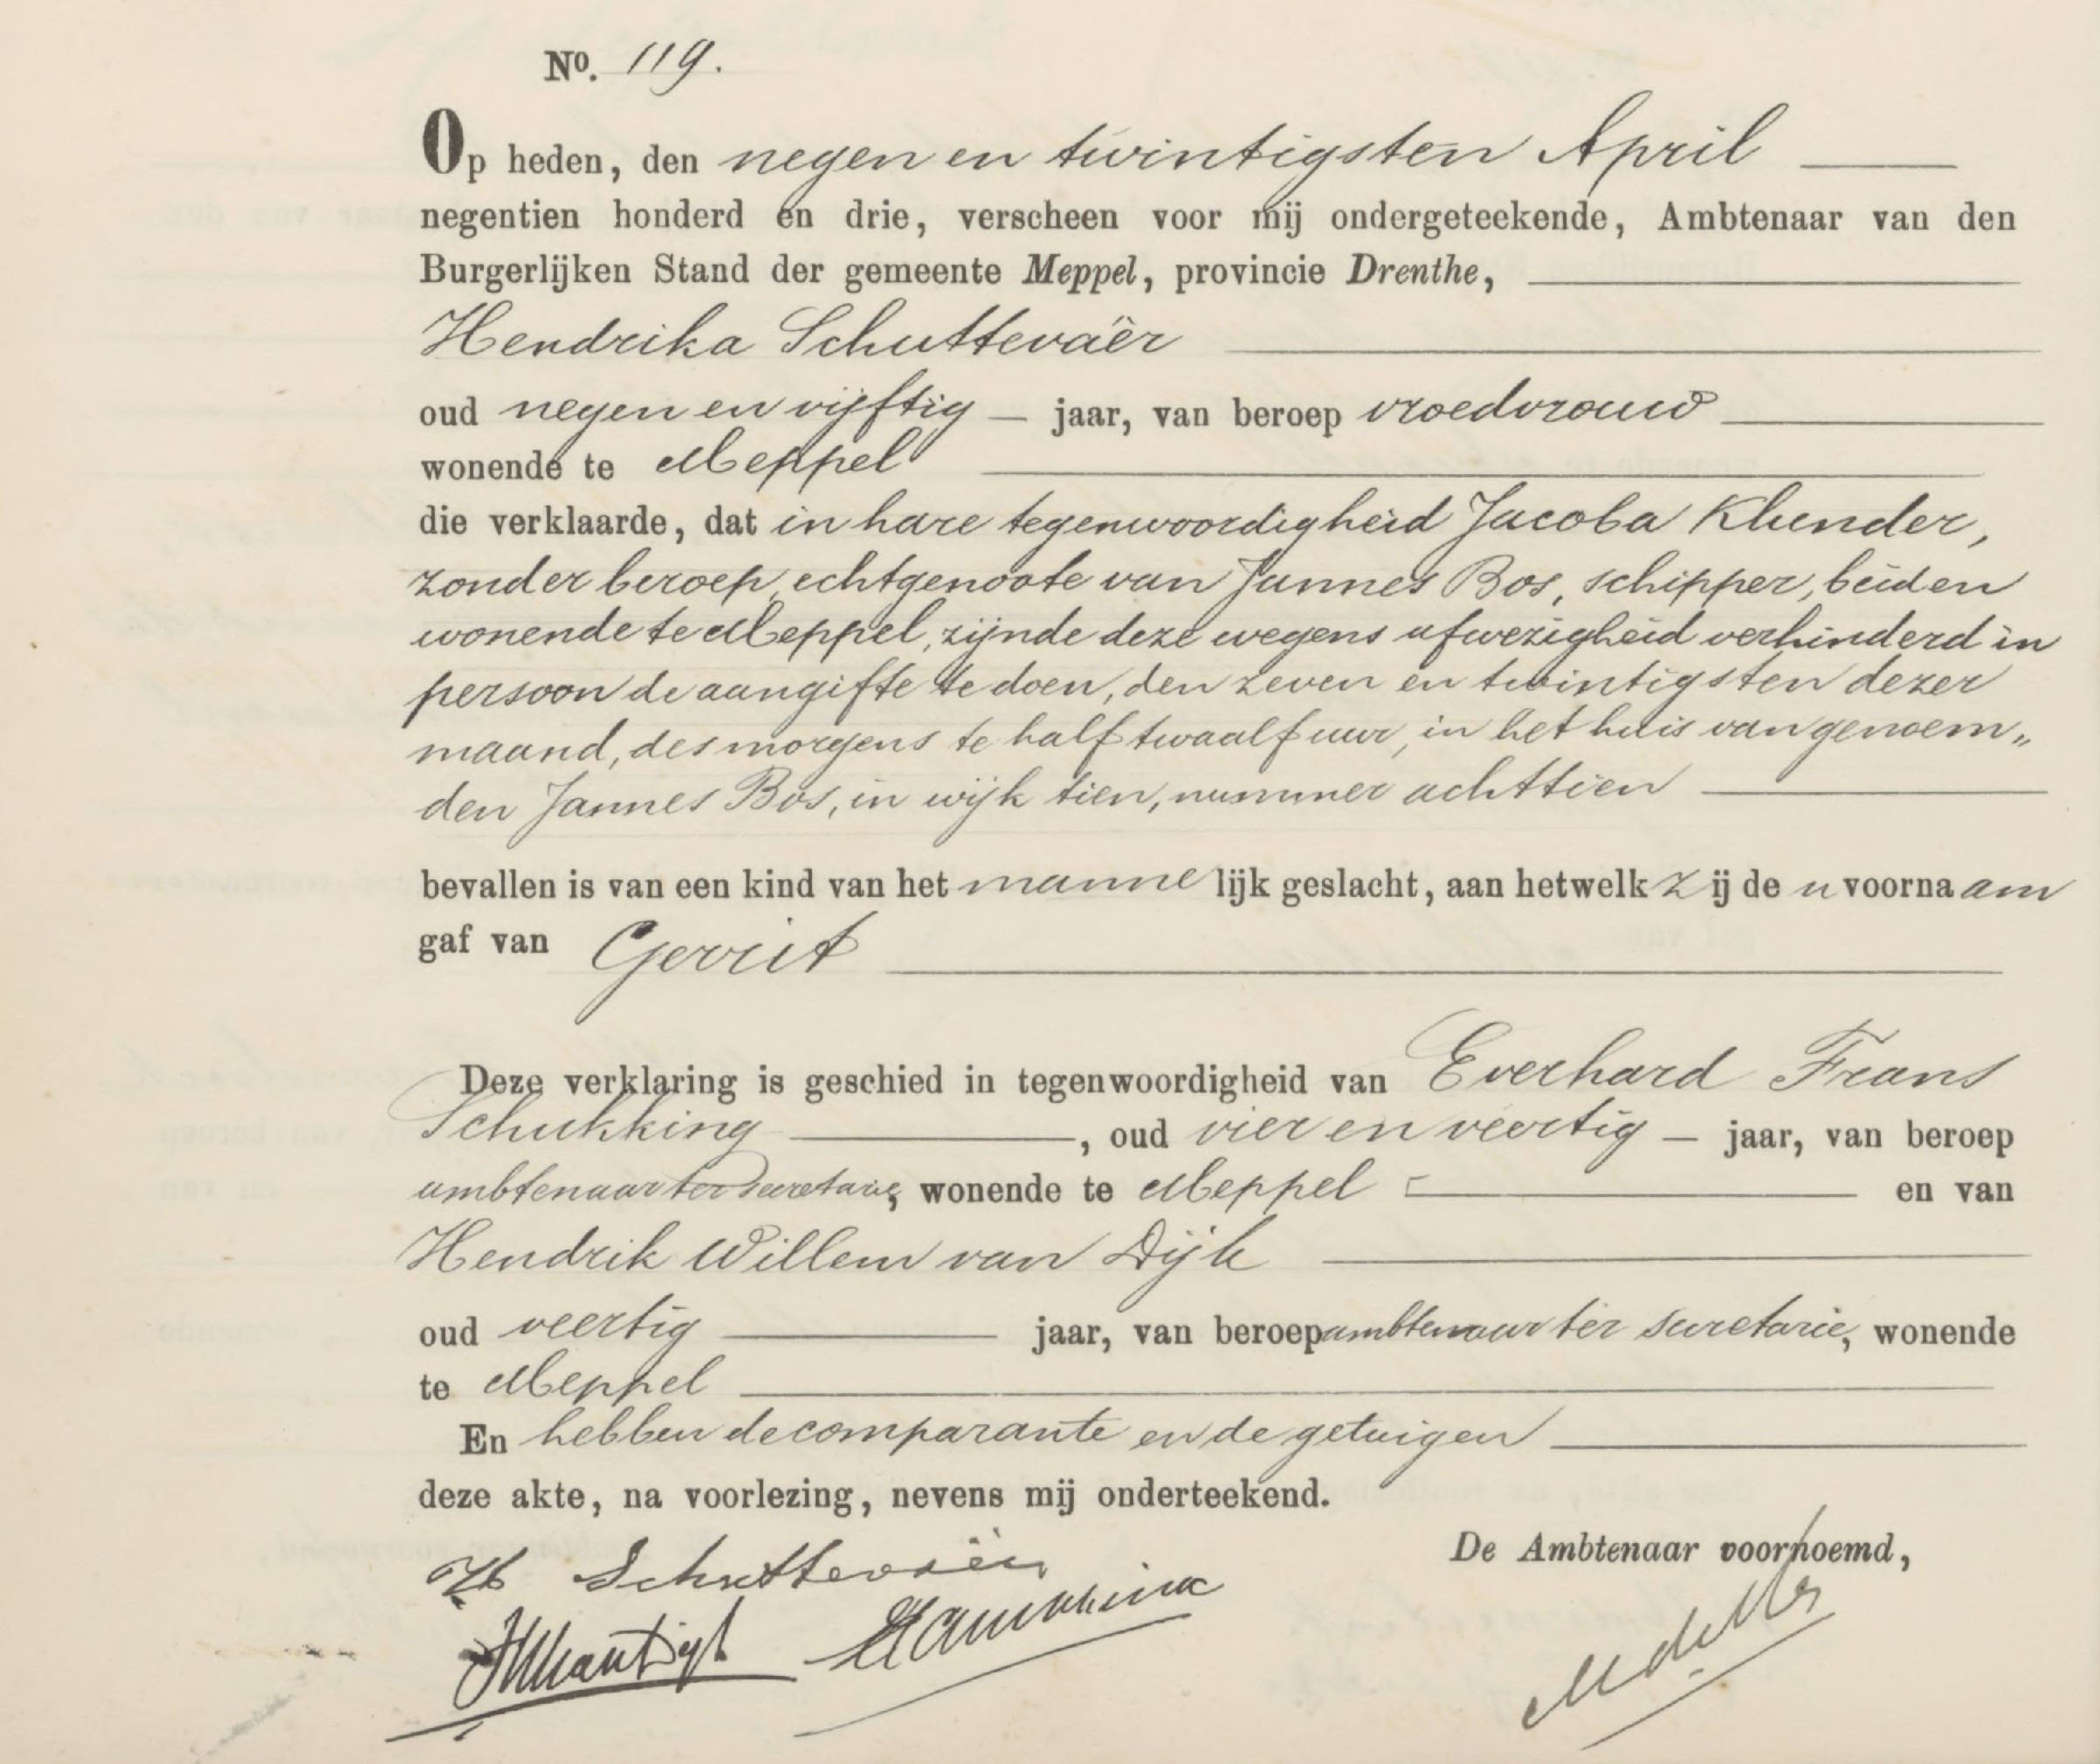 No. 119.
Op heden, den negen en twintigsten April
negentien honderd en drie, verscheen voor mij ondergeteekende, Ambtenaar van den
Burgerlijken Stand der gemeente Meppel, provincie Drenthe,
Hendrika Schuttevaêr
oud negen en vijftig — jaar, van beroep vroedvrouw
wonende te Meppel
die verklaarde, dat in hare tegenwoordigheid Jacoba Klunder,
zonder beroep, echtgenoote van Jannes Bos, schipper, beiden
wonende te Meppel, zijnde deze wegens afwezigheid verhinderd in
persoon de aangifte te doen, den zeven en twintigsten dezer
maand, des morgens te half twaalf uur, in het huis van genoem„
den Jannes Bos, in wijk tien, nummer achttien
bevallen is van een kind van het mannelijk geslacht, aan hetwelk zij de n voornaam
gaf van Gerrit
Deze verklaring is geschied in tegenwoordigheid van Everhard Frans
Schukking, oud vier en veertig — jaar, van beroep
ambtenaar ter secretarie, wonende te Meppel en van
Hendrik Willem van Dijk
oud veertig jaar, van beroep ambtenaar ter secretarie, wonende
te Meppel
En hebben de comparante en de getuigen
deze akte, na voorlezing, nevens mij onderteekend.
De Ambtenaar voornoemd,
H Schuttevaêr
HWvanDijk